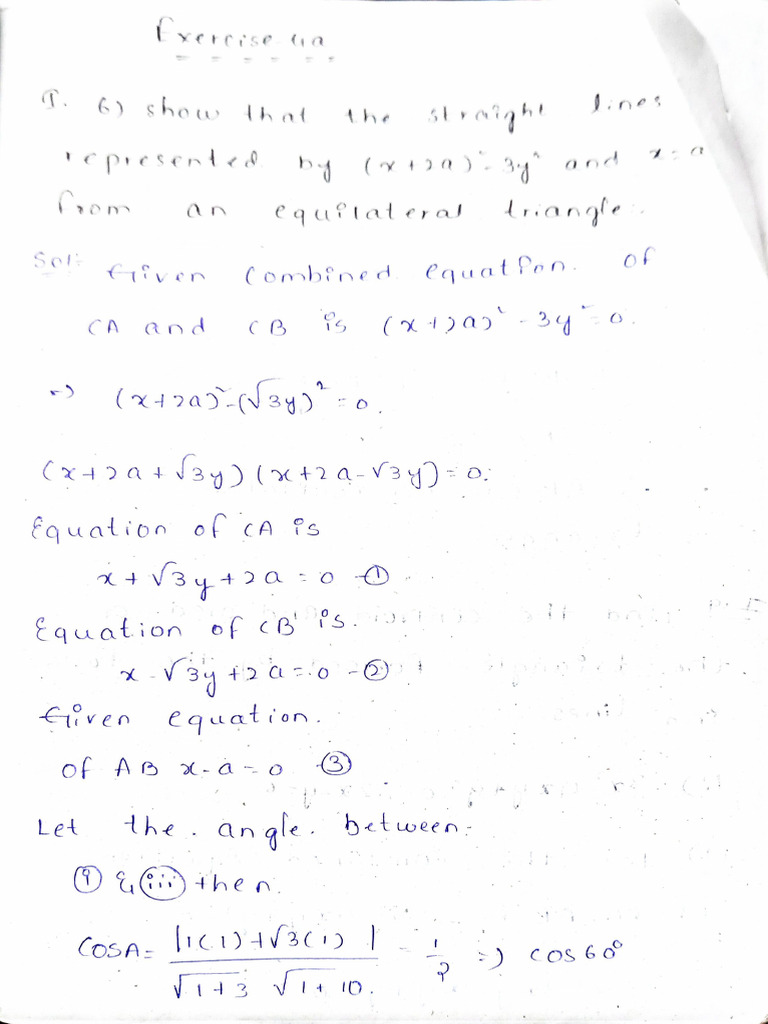 Exercise 4a
I. 6) show that the straight lines
represented by (x+2a)²-3y² and x=a
from an equilateral triangle.
Sol:- Given Combined equation of
CA and CB is (x+2a)²-3y²=0.
=) (x+2a)²-(√3y)²=0.
(x+2a+√3y)(x+2a-√3y)=0.
Equation of CA is
x+√3y+2a=0 -①
Equation of CB is.
x-√3y+2a=0 -②
Given equation.
of AB x-a=0 ③
Let the angle between.
① & ⅲ then
COSA= |1(1)+√3(1)| / √1+3 √1+10. = 1/2 =) cos60°